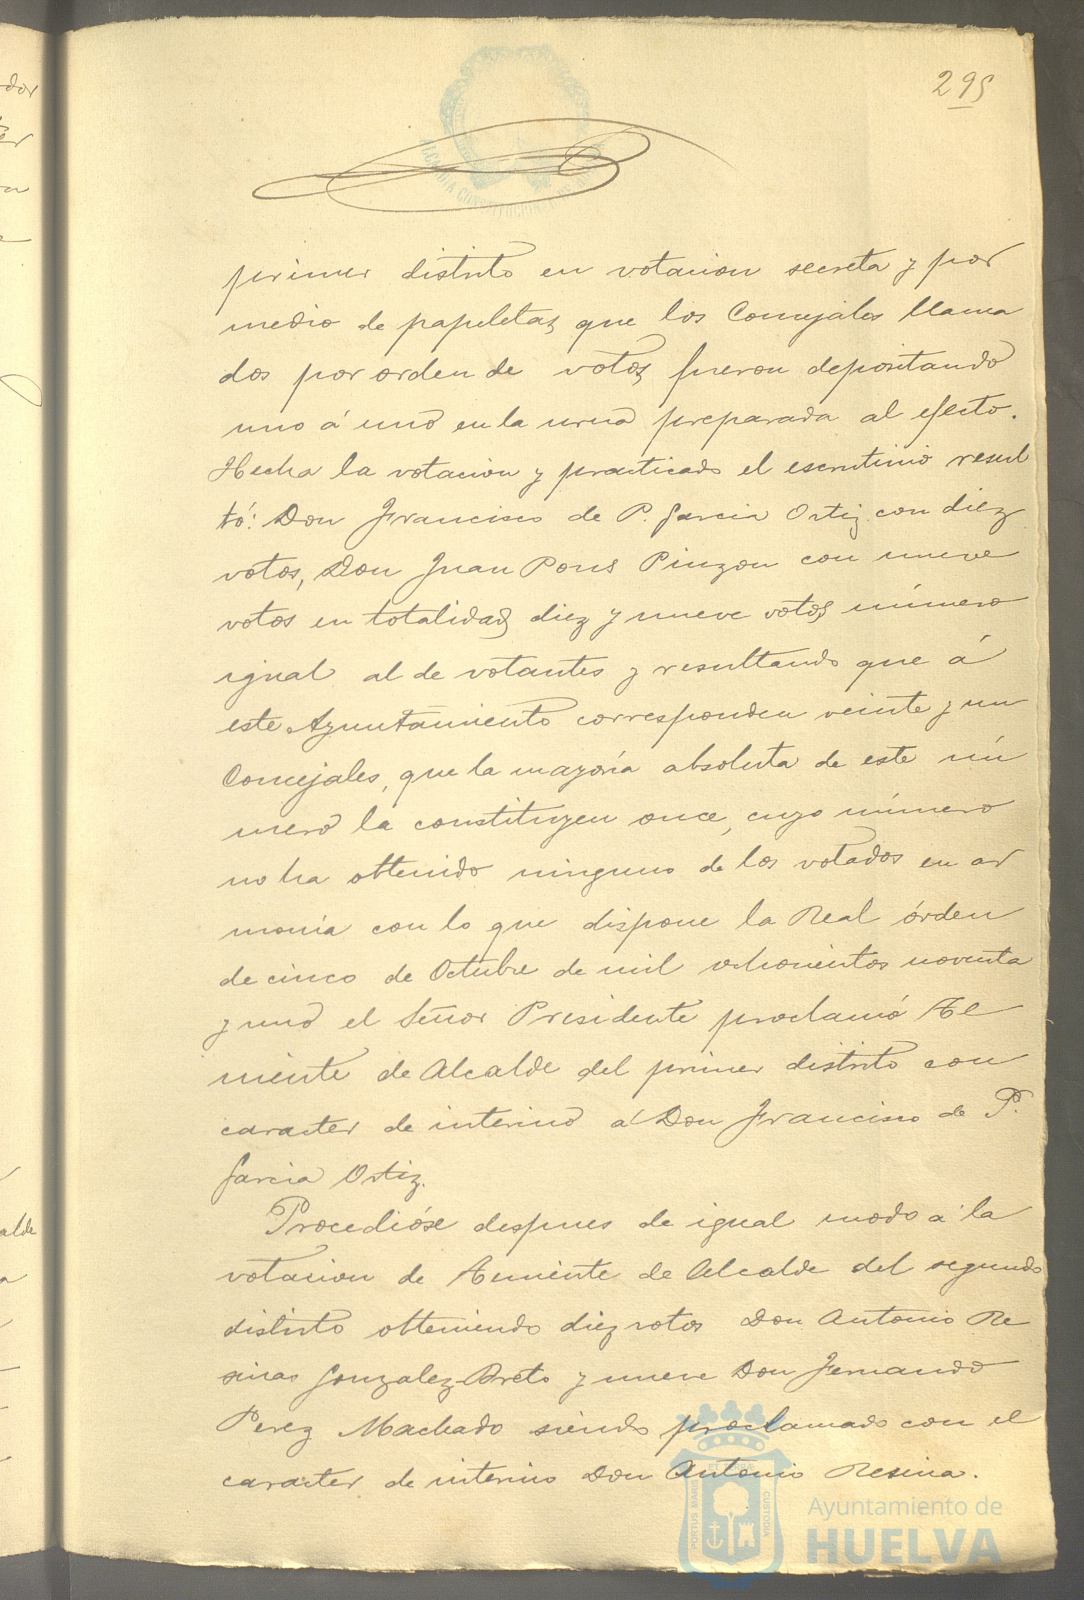 295
primer distrito en votacion secreta y por
medio de papeletas que los Concejales llama
dos por orden de votos fueron depositando
uno á uno en la urna preparada al efecto.
Hecha la votacion y practicado el escrutinio resul
tó: Don Francisco de P. Garcia Ortiz con diez
votos, Don Juan Pons Pinzon con nueve
votos en totalidad diez y nueve votos, número
igual al de votantes y resultando que á
este Ayuntamiento corresponden veinte y un
Concejales, que la mayoría absoluta de este nú
mero la constituyen once, cuyo número
no ha obtenido ninguno de los votados en ar
monía con lo que dispone la Real órden
de cinco de Octubre de mil ochocientos noventa
y uno el Señor Presidente proclamó Te
niente de Alcalde del primer distrito con
caracter de interino á Don Francisco de P.
Garcia Ortiz.
Procedióse despues de igual modo á la
votacion de Teniente de Alcalde del segundo
distrito obteniendo diez votos Don Antonio Re
sinas Gonzalez Preto y nueve Don Fernando
Perez Machado siendo proclamado con el
caracter de interino Don Antonio Resina.
PORTUS MARIS
CUSTODIA
Ayuntamiento de
HUELVA